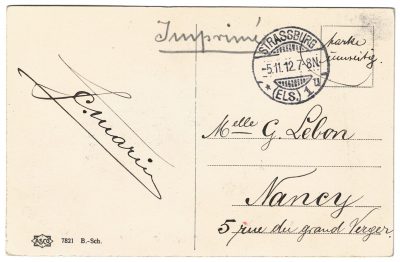 Imprimé
STRASSBURG
-5.11.12.7-8N.
* (ELS.) 1 u
Marke
umseitig.
Melle G. Lebon
Nancy
5 rue du grand Verger.
ASCO
7821 B.-Sch.